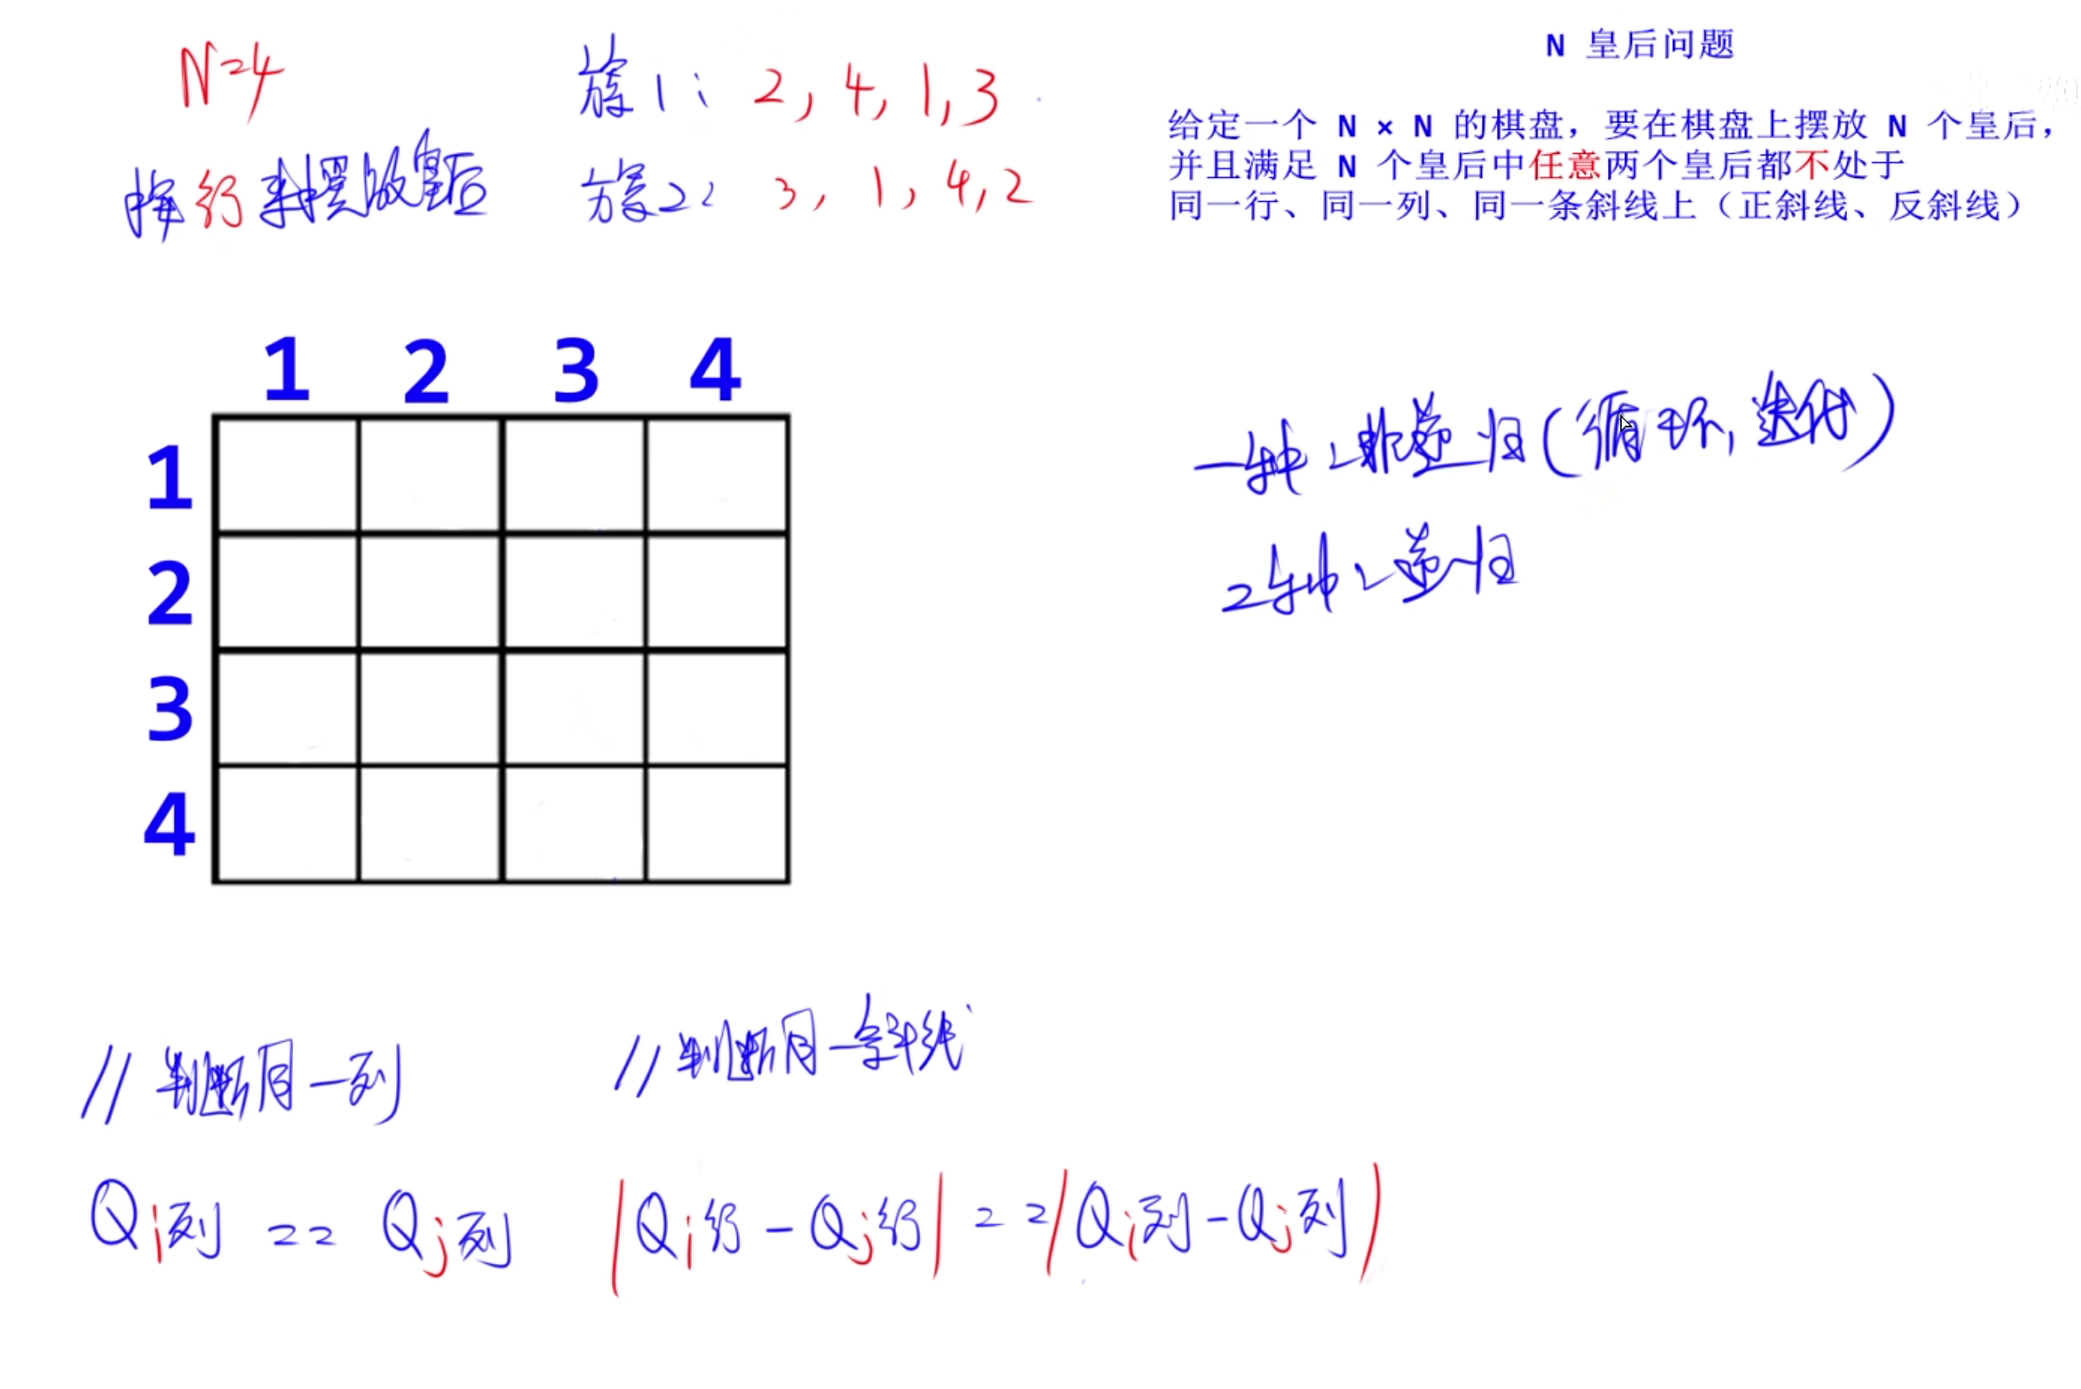 N=4
按行来摆放皇后
方案1: 2, 4, 1, 3
方案2: 3, 1, 4, 2
N 皇后问题
给定一个 N × N 的棋盘，要在棋盘上摆放 N 个皇后，
并且满足 N 个皇后中任意两个皇后都不处于
同一行、同一列、同一条斜线上（正斜线、反斜线）
1 2 3 4
1
2
3
4
一种: 非递归(循环, 迭代)
2种: 递归
// 判断同一列
Qi列 == Qj列
// 判断同一斜线
|Qi行 - Qj行| == |Qi列 - Qj列|